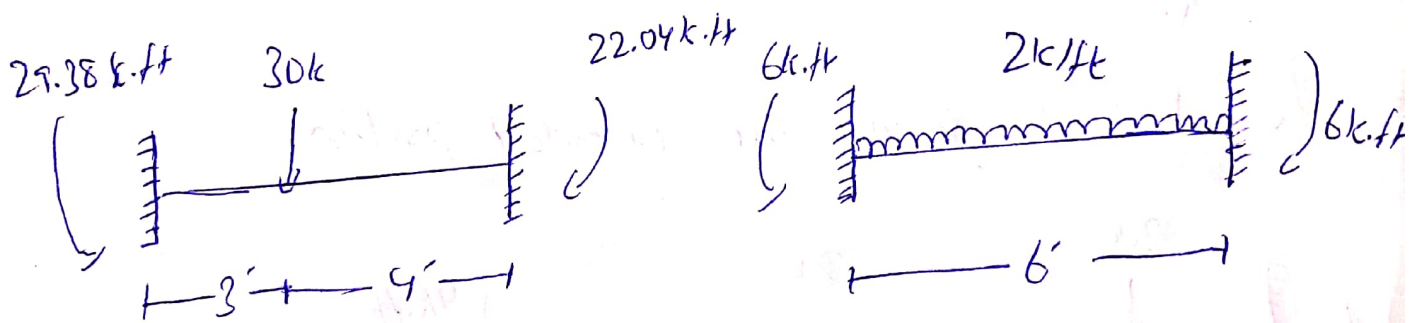 29.38 k.ft 30k 22.04 k.ft 6k.ft 2k/ft 6k.ft
3' 4' 6'